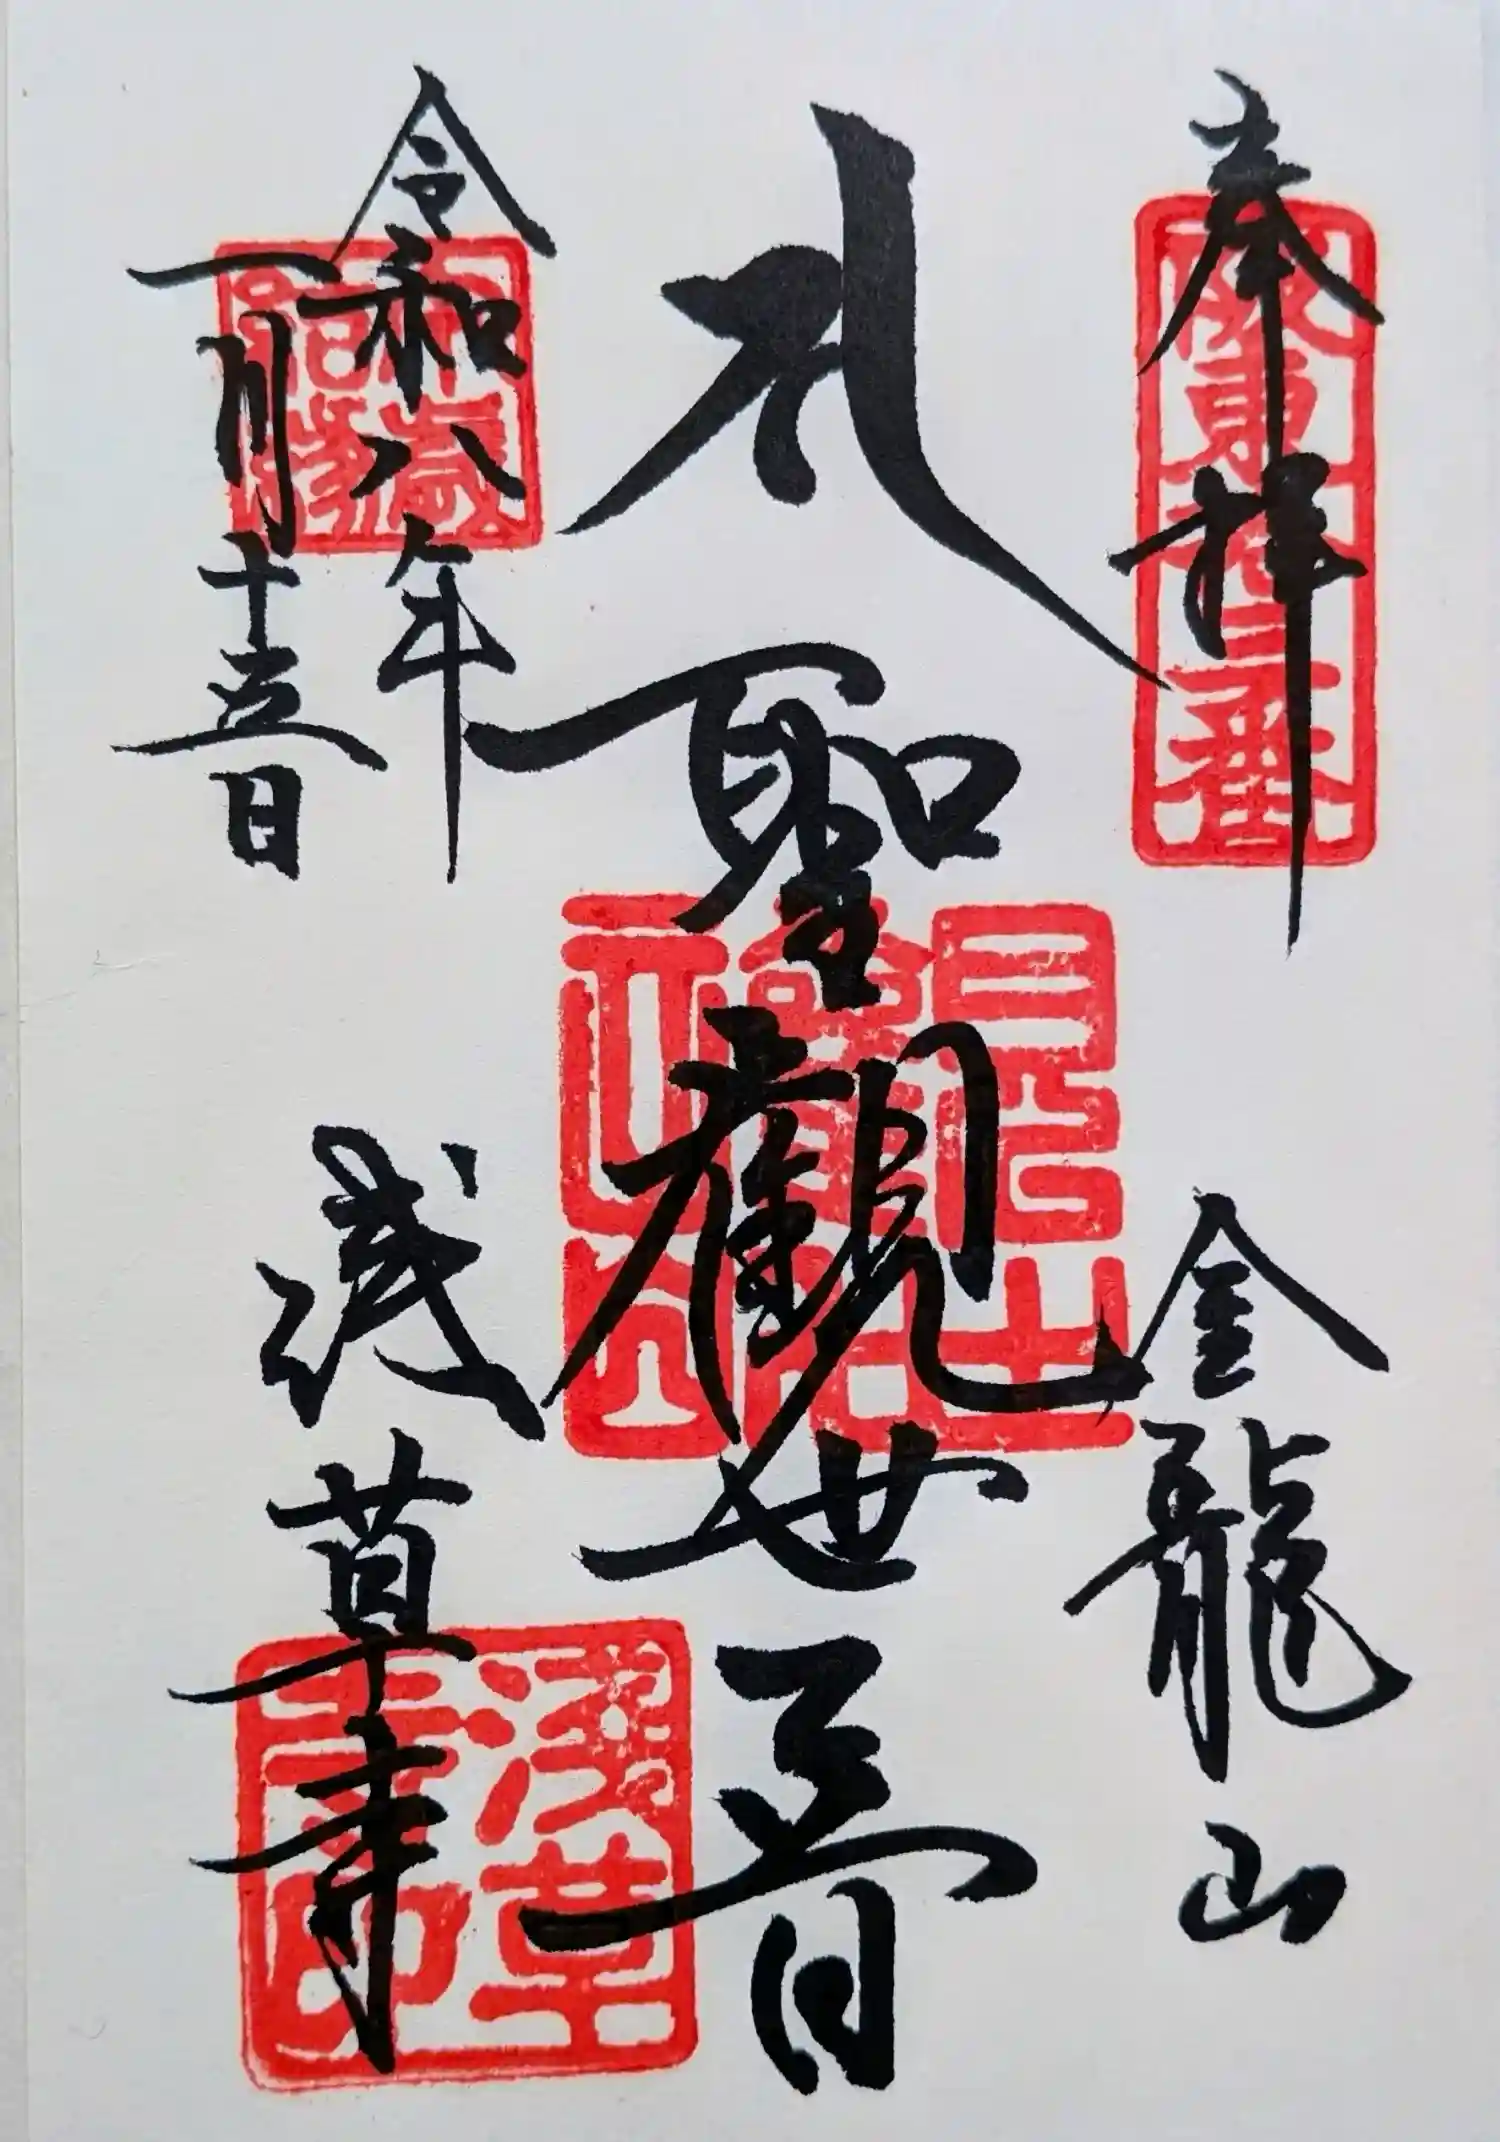 奉拝
坂東十三番
金龍山
聖觀世音
令和八年
一月十五日
浅草寺
淺草寺印